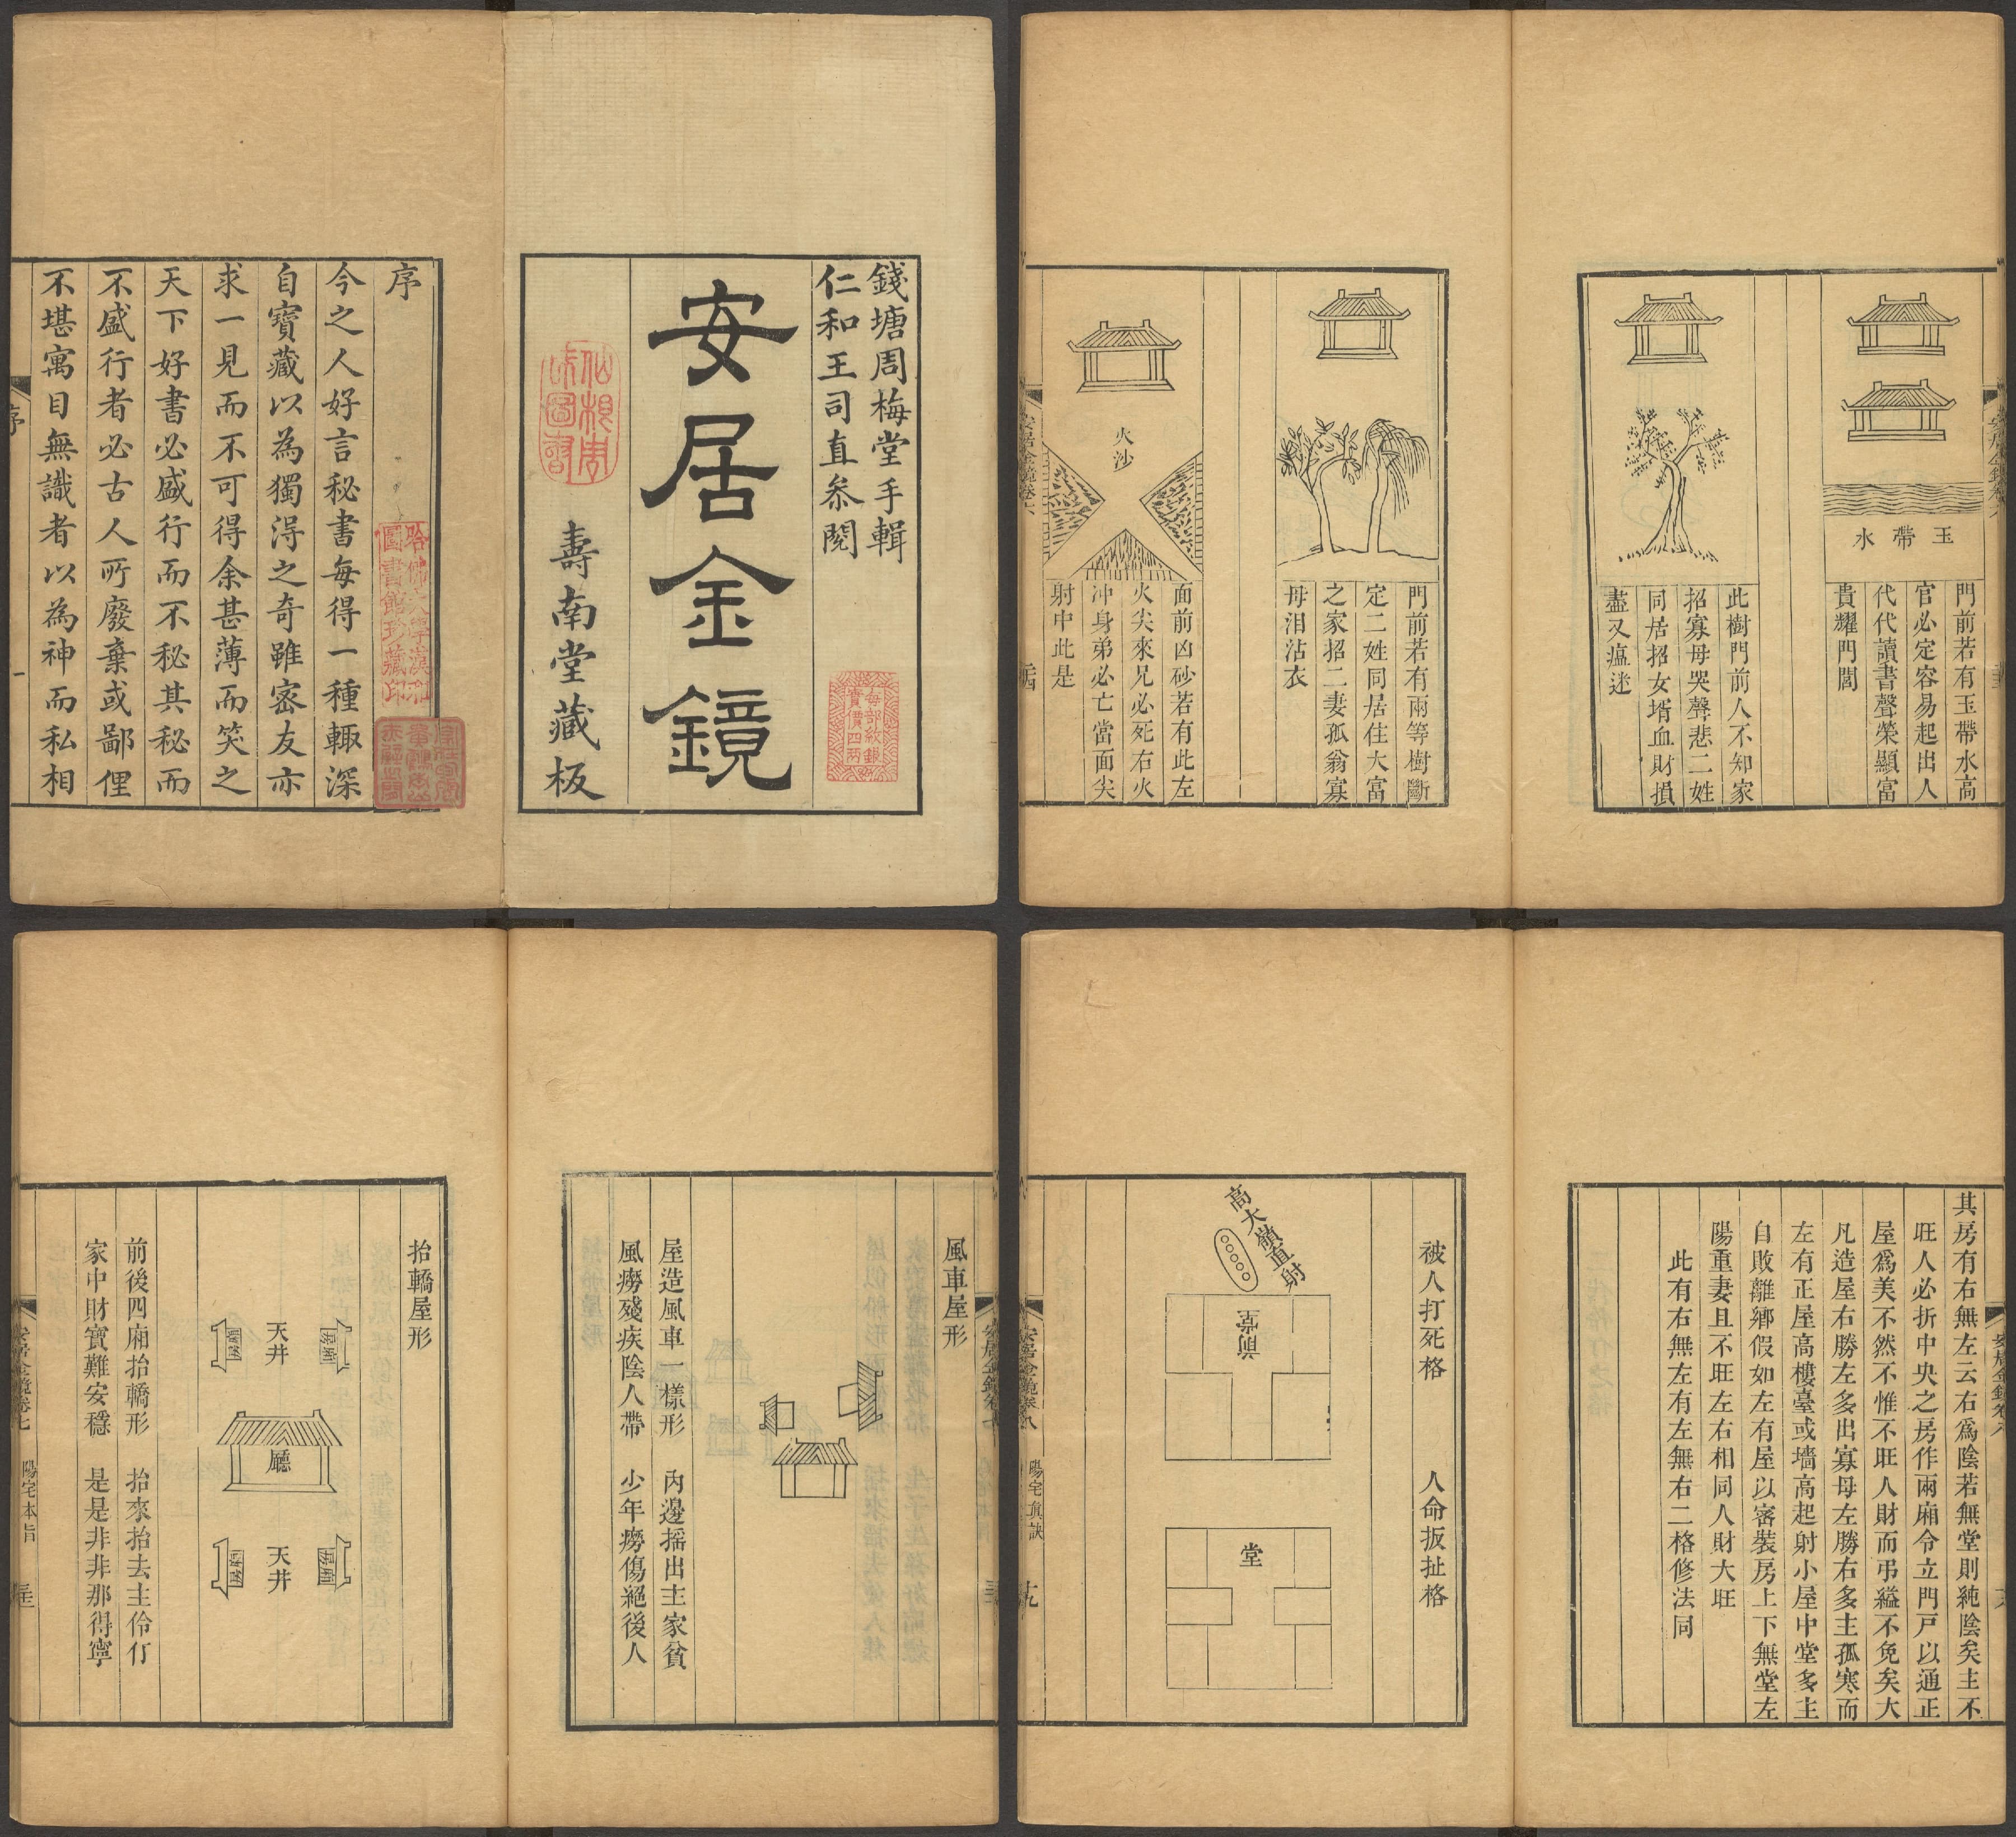 錢塘周梅堂手輯
仁和王司直叅閱
安居金鏡
壽南堂藏板
每部紋銀
實價四兩
序
今之人好言秘書每得一種輙深
自寶藏以為獨得之奇雖密友亦
求一見而不可得余甚薄而笑之
天下好書必盛行而不秘其秘而
不盛行者必古人所廢棄或鄙俚
不堪寓目無識者以為神而私相
哈佛大學漢和
圖書館珍藏印
序
一
玉帶水
門前若有玉帶水高
官必定容易起出人
代代讀書聲榮顯富
貴耀門閭
此樹門前人不知家
招寡母哭聲悲二姓
同居招女壻血財損
盡又瘟迷
門前若有兩等樹斷
定二姓同居住大富
之家招二妻孤翁寡
母泪沾衣
火沙
面前凶砂若有此左
火尖來兄必死右火
冲身弟必亡當面尖
射中此是
安居金鏡卷六
風車屋形
屋造風車一樣形 丙邊摇出主家貧
風癆殘疾陰人帶 少年癆傷絕後人
抬轎屋形
天井
廳
天井
前後四廂抬轎形 抬來抬去主伶仃
家中財寶難安穩 是是非非那得寧
安居金鏡卷七
陽宅本旨
其房有右無左云右爲陰若無堂則純陰矣主不
旺人必折中央之房作兩廂令立門戸以通正
屋爲美不然不惟不旺人財而弔縊不免矣大
凡造屋右勝左多出寡母左勝右多主孤寒而
左有正屋高樓臺或墻高起射小屋中堂多主
自敗離鄉假如左有屋以審裝房上下無堂左
陽重妻且不旺左右相同人財大旺
此有右無左有左無右二格修法同
被人打死格
人命扳扯格
高大嶺直射
堂
安居金鏡卷八
陽宅眞訣
十九